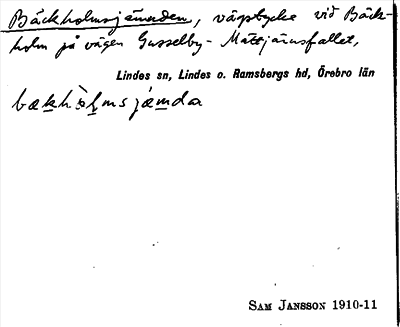 Bäckholmsjämnden, vägstycke vid Bäck-
holm på vägen Gusselby - Mättjärnsfallet,
Lindes sn, Lindes o. Ramsbergs hd, Örebro län
bækhòlmsjǽmda
SAM JANSSON 1910-11